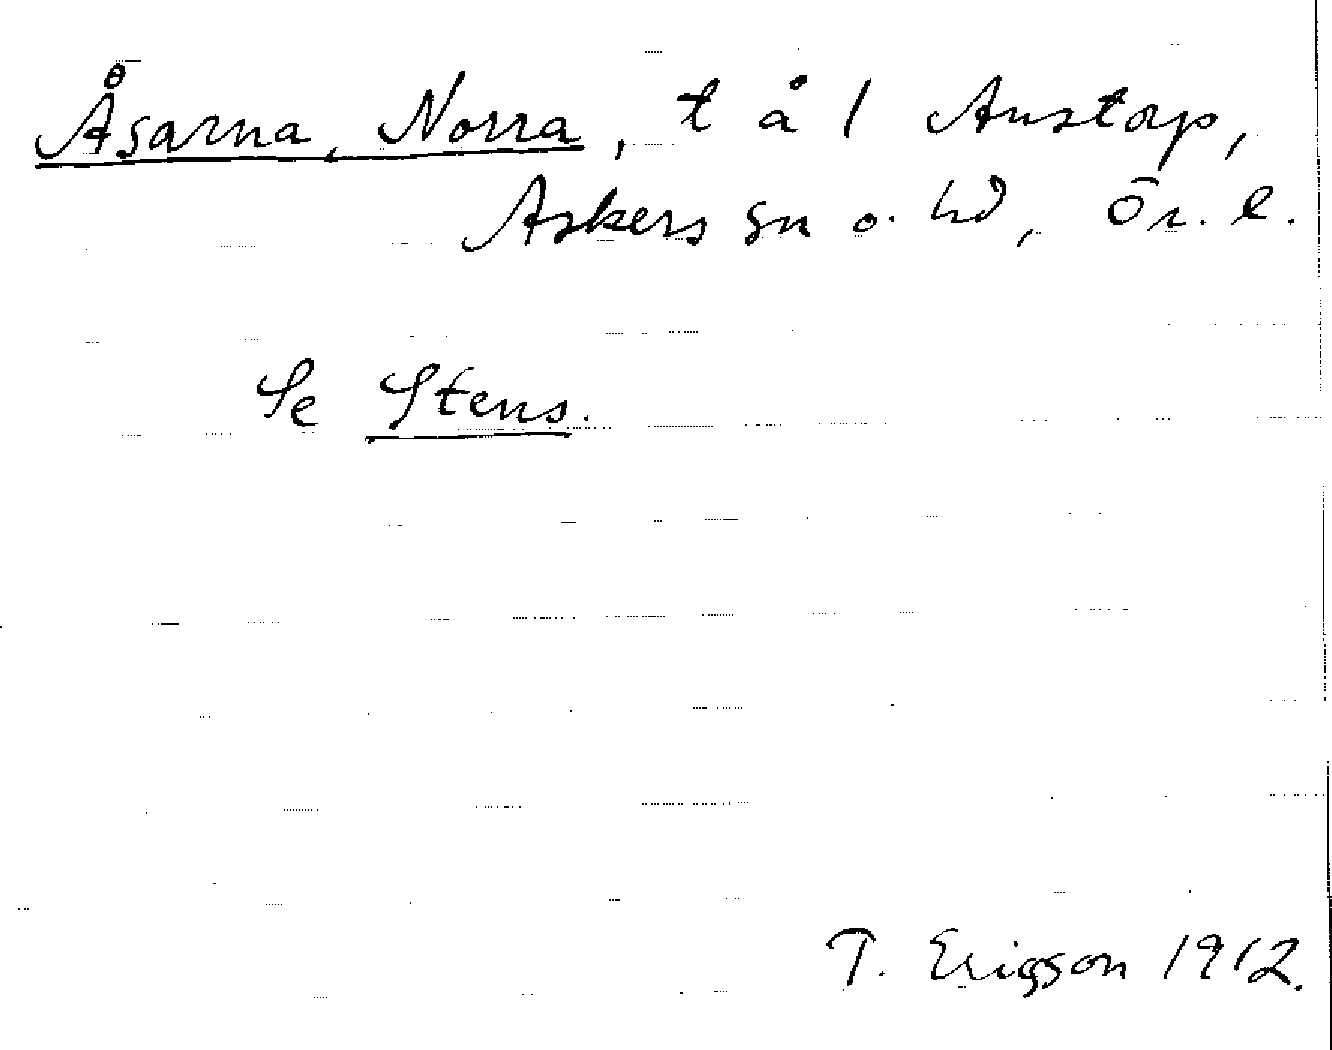 Åsarna, Norra, t å 1 Anstorp,
Askers sn o. hd, Ör. l.
Se Stens.
T. Ericsson 1912.